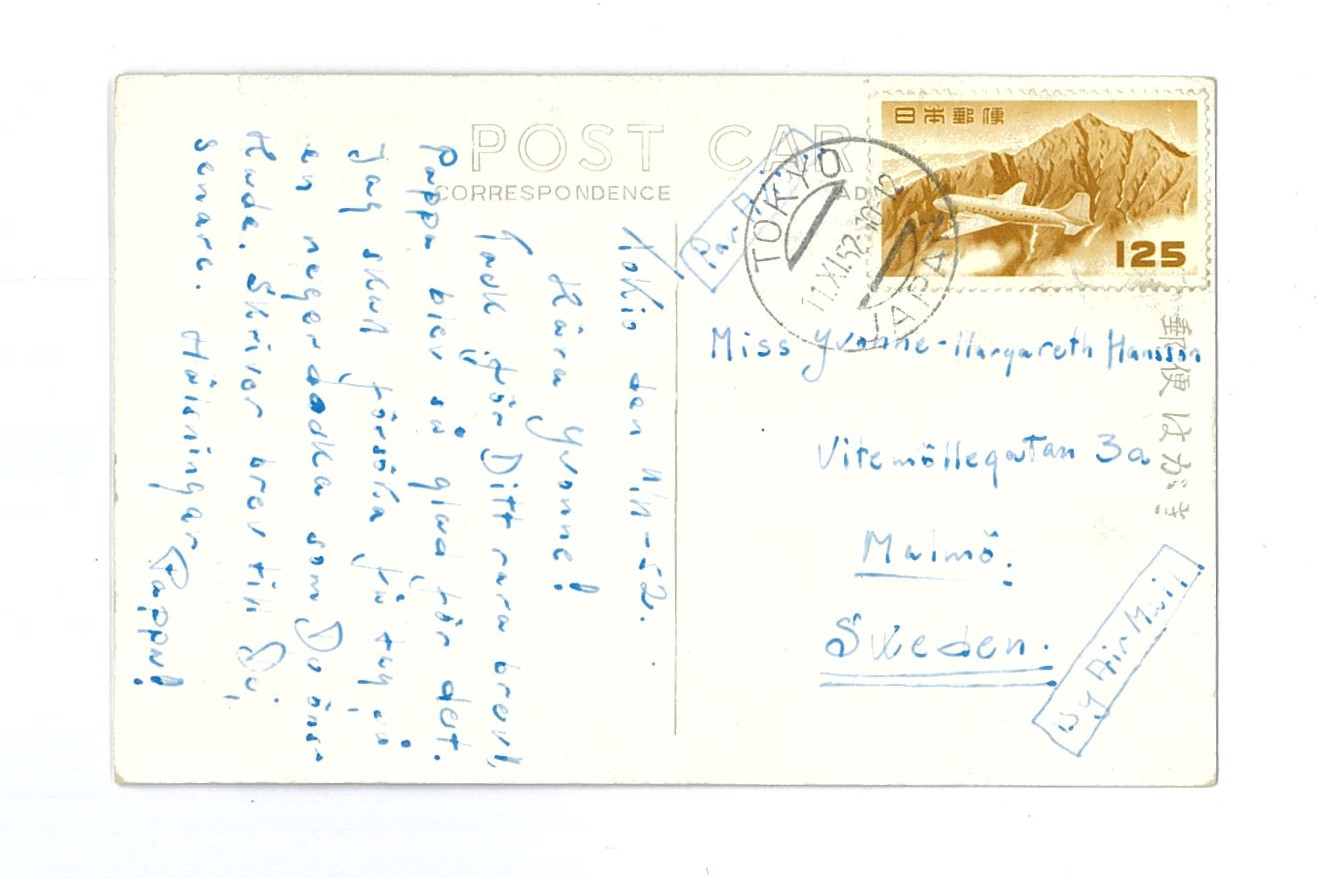 POST CAR
CORRESPONDENCE
AD
日本郵便
125
TOKYO
11.XI.52.10-12
JAPAN
郵便はがき
Par
Tokio den 11/11-52.
Kära Yvonne!
Tack för Ditt rara brev,
Pappa blev så glad för det.
Jag skall försöka få tag på
en negerdocka som Du öns-
kade. Skriver brev till Dej
senare. Hälsningar
Pappa!
Miss Yvonne-Margareth Hansson
Vitemöllegatan 3a
Malmö.
Sweden.
By Air Mail